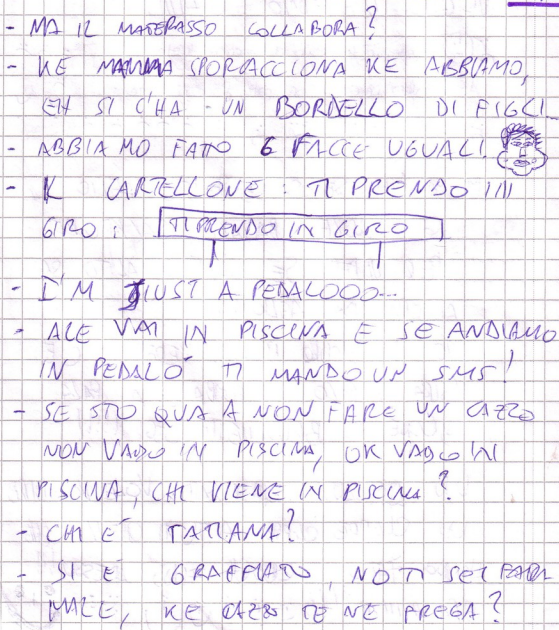 - MA IL MATERASSO COLLABORA?
- KE MAMMA SPORACCIONA KE ABBIAMO,
EH SI C'HA UN BORDELLO DI FIGLI
- ABBIAMO FATTO 6 FACCE UGUALI
- CARTELLONE: TI PRENDO IN
GIRO: TI PRENDO IN GIRO
- I'M JIUST A PEDALOOO...
- ALE VAI IN PISCINA E SE ANDIAMO
IN PEDALO' TI MANDO UN SMS!
- SE STO QUA A NON FARE UN CAZZO
NON VADO IN PISCINA, OK VADO IN
PISCINA, CHI VIENE IN PISCINA?
- CHI E' TATIANA?
- SI E' GRAFFIATO, NO TI SEI FATTA
MALE, KE CAZZO TE NE FREGA?